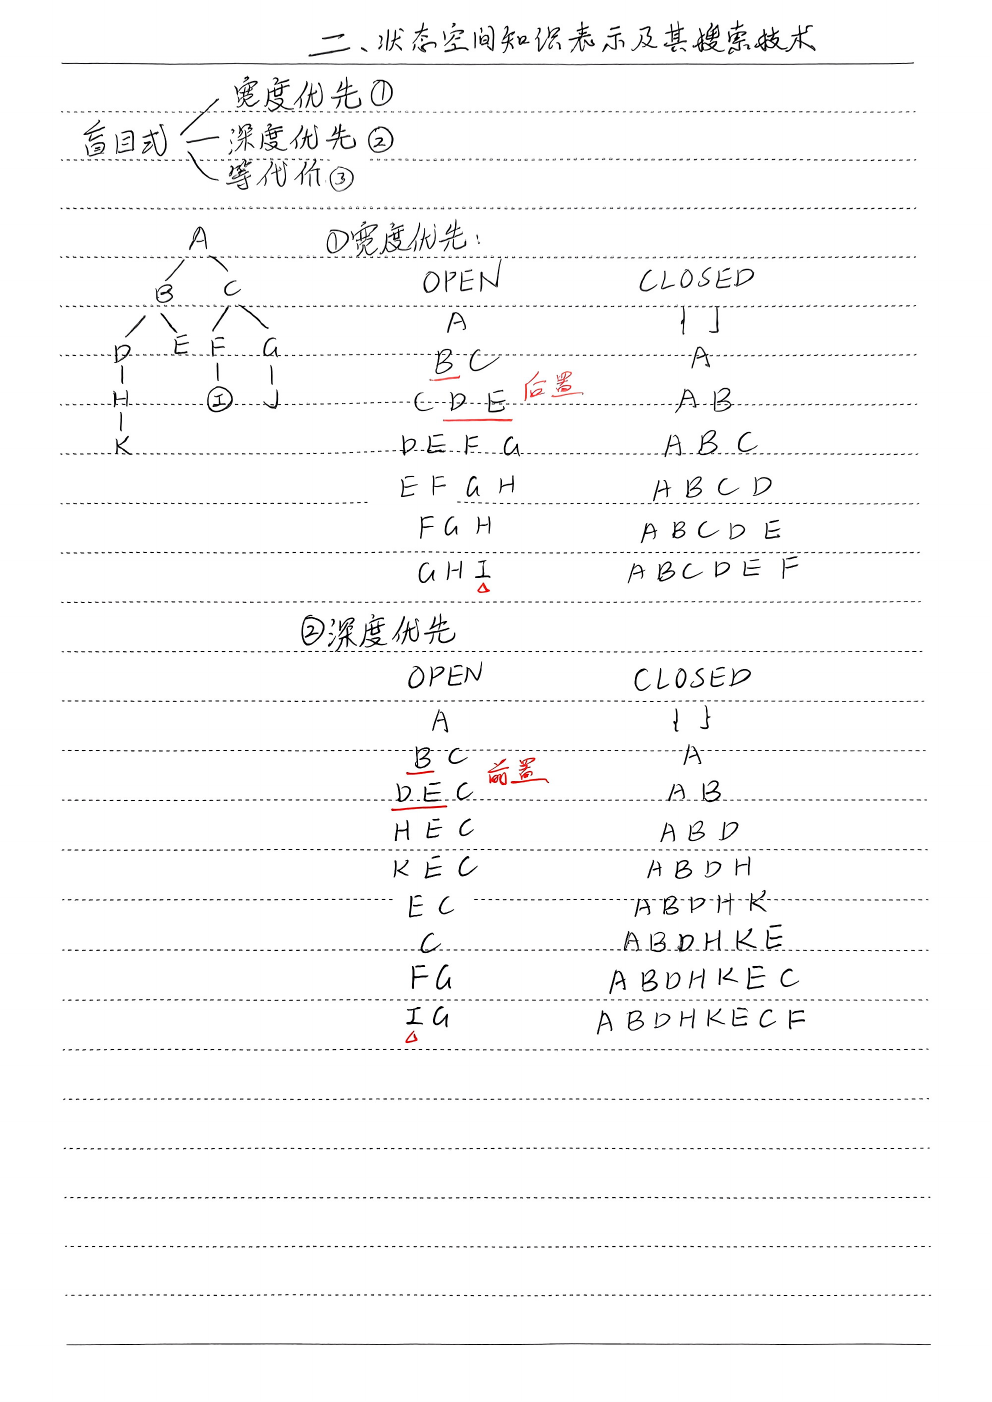 二、状态空间知识表示及其搜索技术
宽度优先①
盲目式 深度优先②
等代价③
A ①宽度优先:
B C OPEN CLOSED
A { }
D E F G B C A
H I J C D E 后置 A B
K D E F G A B C
E F G H A B C D
F G H A B C D E
G H I A B C D E F
②深度优先
OPEN CLOSED
A { }
B C A
前置
D E C A B
H E C A B D
K E C A B D H
E C A B D H K
C A B D H K E
F G A B D H K E C
I G A B D H K E C F